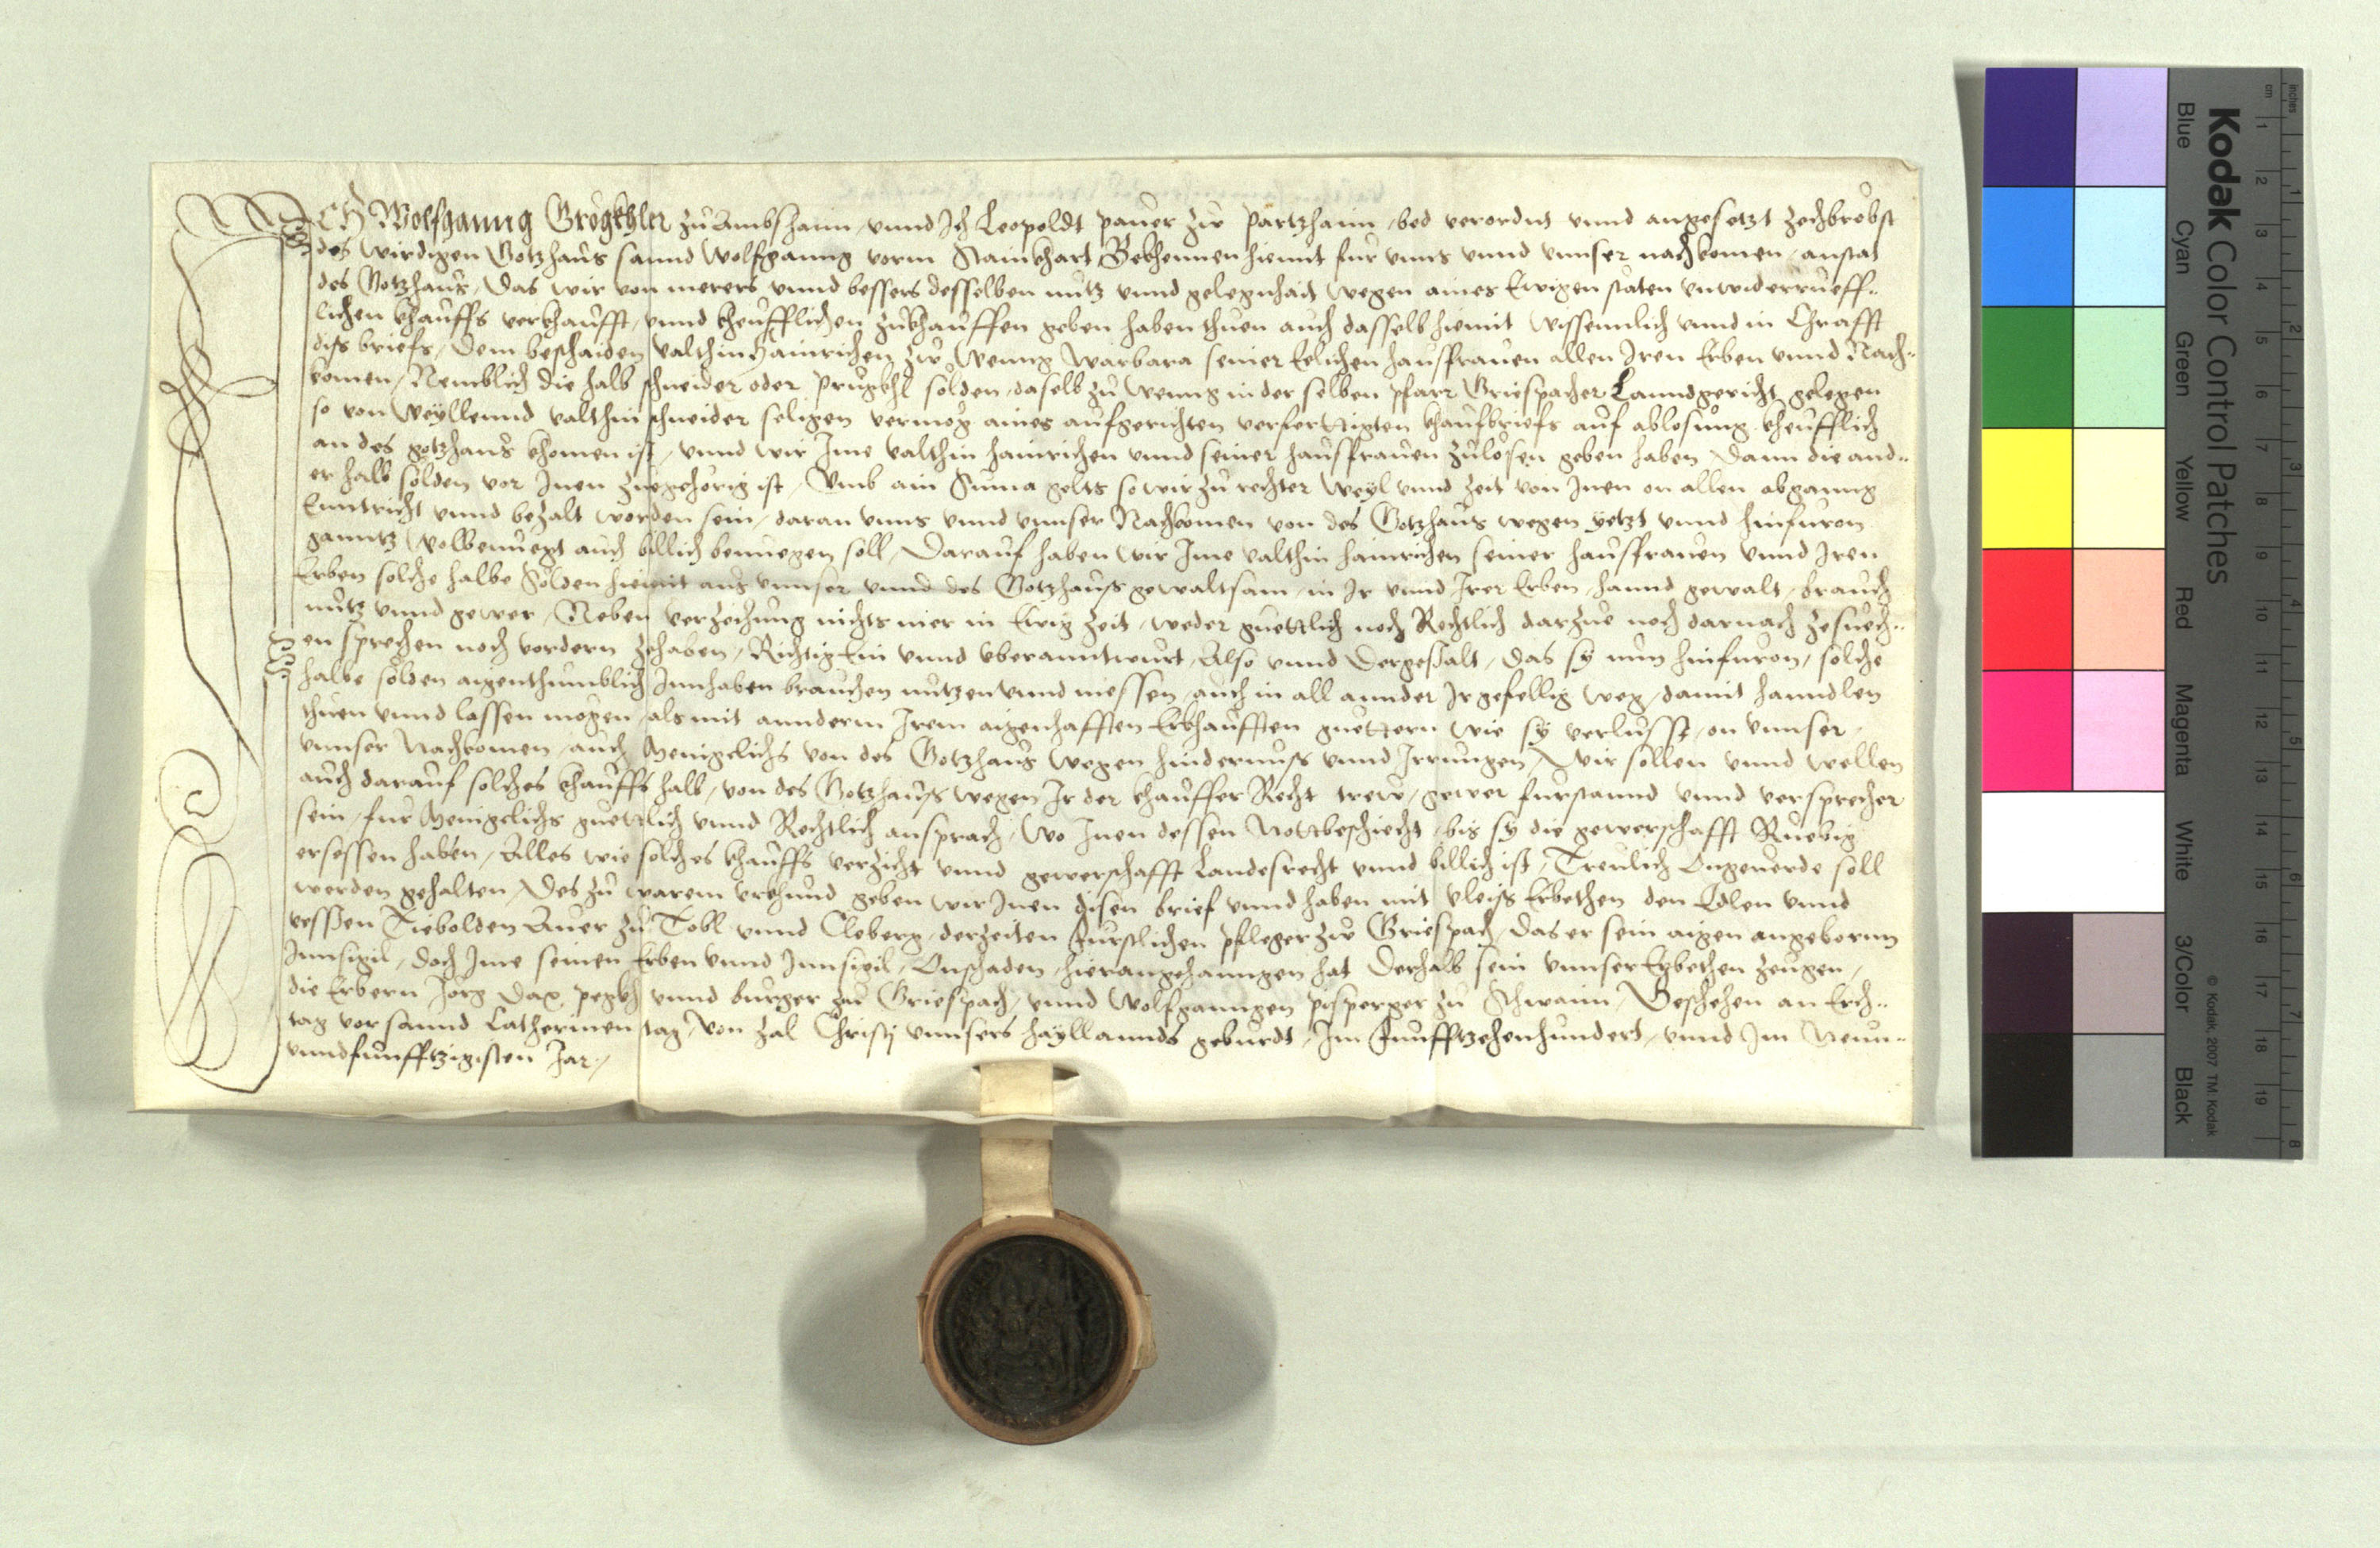 ICH Wolfganng Grögkhler zu Ambshaim, vnnd Ich Leopoldt paur zw Partzhaim, bed verordnt vnnd angesetzt zechbröbst
des wirdigen Gotzhaus sannd Wolfganng vorm Stainkhart Bekhennen hiemit fur vnns vnnd vnnser nachkomen, anstat
des Gotzhaus, Das wir von merers vnnd bessers desselben nutz vnnd gelegnhait wegen aines Ewigen stäten vnwiderrueff-
lichen khauffs verkhaufft, vnnd kheufflichen zukhauffen geben haben thuen auch dasselb hiemit wissennlich vnnd in Chrafft
diss briefs, Dem beschaiden Valthin Hainrichen zw Wenng Warbara seiner Eelichen hausfrauen allen Iren Erben vnnd Nach-
komen, Nemblich die halb schneider oder prugkhl sölden, daselb zu Wenng in der selben pfarr Griespacher Lanndgericht gelegen
so von Weyllennd Valthin schneider seligen vermög aines aufgerichten verferttigten khaufbriefs auf ablosung kheufflich
an des gotzhaus khomen ist, vnnd wir Ime Valthin hainrichen vnnd seiner hausfrauen zulösen geben haben Dann die and-
er halb sölden vor Inen zuegehorig ist, Vmb ain Suma gelts so wir zu rechter Weyl vnnd zeit von Inen on allen abganng
Enntricht vnnd bezalt worden sein, daran vnns vnnd vnnser Nachkomen von des Gotzhaus wegen yetzt vnnd hinfuron
ganntz wolbenuegt auch billich benuegen soll, Darauf haben wir Ime Valthin hainrichen seiner hausfrauen vnnd Iren
Erben solche halbe Sölden hiemit aus vnnser vnnd des Gotzhaus gewaltsam, in Ir vnnd Irer Erben, hannd gewalt, brauch
nutz vnnd gewer, Neben verzeichung nichts mer in Ewig zeit, weder guettlich noch Rechtlich darzue noch darnach zesuech-
en sprechen noch vordern zehaben, Richtig Ein vnnd vberanntwurt, Also vnnd Dergestalt, Das sy nun hinfuron, solche
halbe sölden aigenthumblich Innhaben brauchen nutzen vnnd niessen, auch in all annder Ir gefellig weg, damit hanndlen
thuen vnnd lassen mögen, als mit annderm Irem aigenhafften Erkhaufften guettern wie sy verlusst, on vnnser,
vnnser Nachkomen, auch Menigelichs von des Gotzhaus wegen hindernuss vnnd Irrungen, Wir sollen vnnd wellen
auch darauf solches khauffs halb, von des Gotzhauss wegen Ir der khauffer Recht trew, gewer furstannd vnnd versprecher
sein, fur Menigelichs guettlich vnnd Rechtlich ansprach, Wo Inen dessen Nott beschiecht, bis sy die gewerschafft Ruebig
ersessen haben, Alles wie solches khauffs verzicht vnnd gewerschafft Landesrecht vnnd billich ist, Treulich Ongeuerde soll
werden gehalten, Des zu warem vrkhund geben wir Inen disen brief vnnd haben mit vleiss Erbethen den Edlen vnnd
vessten Tiebolden Auer zu Tobl vnnd Cleberg, derzeiten furstlichen pfleger zw Griespach, Das er sein aigen angeborn
Innsigil, Doch Ime seinen Erben vnnd Innsigil, Onschaden, hierangehanngen hat Derhalb sein vnnser Erbethen zeugen,
die Erbern Jörg Dax, pegkh vnnd burger zu Griespach, vnnd Wolfganngen pisperger zu Schwaim, Beschehen an Erch-
tag vor sannd Catherinen tag, Von zal Christi vnnsers hayllannds geburdt, Im funfftzehenhundert, vnnd Im Neun-
vnndfunfftzigisten Jar,
Kodak Color Control Patches
Blue Cyan Green Yellow Red Magenta White 3/Color Black
© Kodak, 2007 TM: Kodak
cm 1 2 3 4 5 6 7 8 9 10 11 12 13 14 15 16 17 18 19
inches 1 2 3 4 5 6 7 8